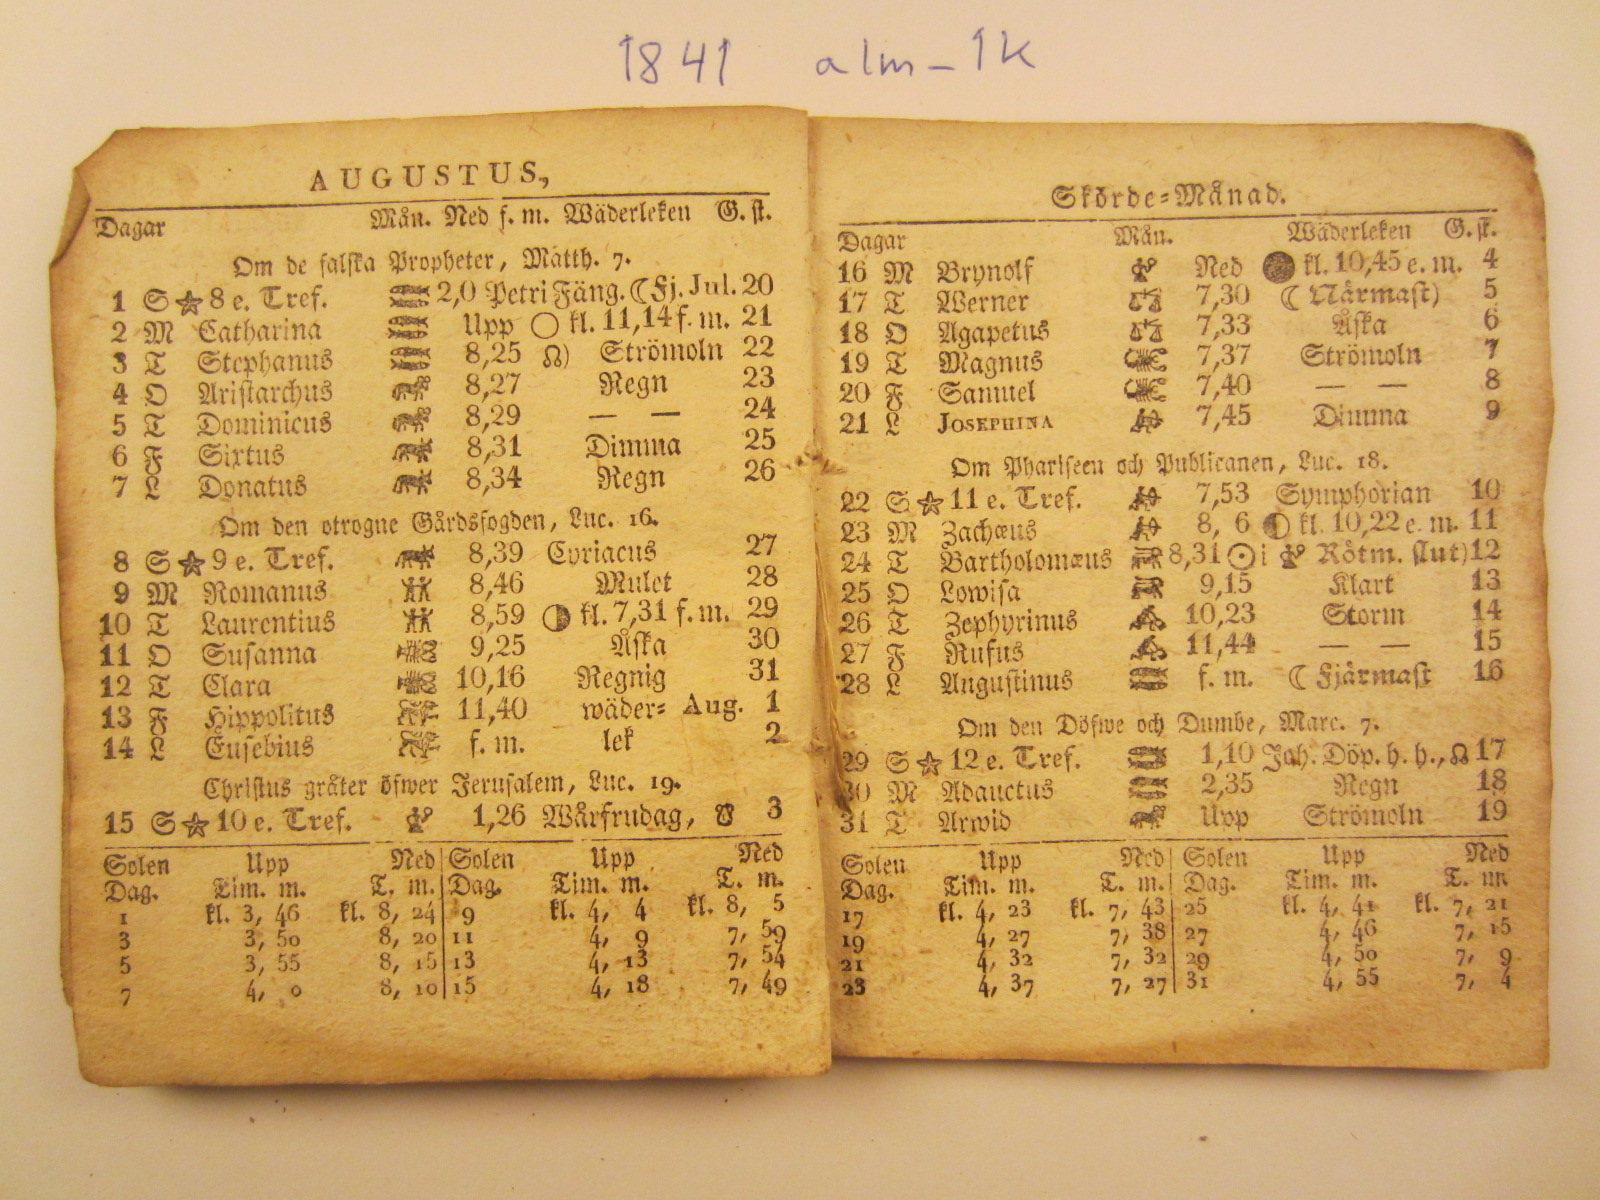 1841 alm-1k
AUGUSTUS,
Dagar Mån. Ned f. m. Wäderleken G. st.
Om de falska Propheter, Matth. 7.
1 S 8 e. Tref. 2,0 Petri Fäng. ☾ Fj. Jul. 20
2 M Catharina Upp ○ kl. 11,14 f. m. 21
3 T Stephanus 8,25 ☊) Strömoln 22
4 O Aristarchus 8,27 Regn 23
5 T Dominicus 8,29 — — 24
6 F Sixtus 8,31 Dimma 25
7 L Donatus 8,34 Regn 26
Om den otrogne Gårdsfogden, Luc. 16.
8 S 9 e. Tref. 8,39 Cyriacus 27
9 M Romanus 8,46 Mulet 28
10 T Laurentius 8,59 kl. 7,31 f. m. 29
11 O Susanna 9,25 Åska 30
12 T Clara 10,16 Regnig 31
13 F Hippolitus 11,40 wäder= Aug. 1
14 L Eusebius f. m. lek 2
Christus gråter öfwer Jerusalem, Luc. 19.
15 S 10 e. Tref. 1,26 Wårfrudag, ☋ 3
Solen Upp Ned Solen Upp Ned
Dag. Tim. m. T. m. Dag. Tim. m. T. m.
1 kl. 3, 46 kl. 8, 24 9 kl. 4, 4 kl. 8, 5
3 3, 50 8, 20 11 4, 9 7, 59
5 3, 55 8, 15 13 4, 13 7, 54
7 4, 0 8, 10 15 4, 18 7, 49
Skörde=Månad.
Dagar Mån. Wäderleken G. st.
16 M Brynolf Ned kl. 10,45 e. m. 4
17 T Werner 7,30 ☾ Närmast) 5
18 O Agapetus 7,33 Åska 6
19 T Magnus 7,37 Strömoln 7
20 F Samuel 7,40 — — 8
21 L JOSEPHINA 7,45 Dimma 9
Om Phariseen och Publicanen, Luc. 18.
22 S 11 e. Tref. 7,53 Symphorian 10
23 M Zachæus 8, 6 kl. 10,22 e. m. 11
24 T Bartholomæus 8,31 ☉ i Rötm. slut) 12
25 O Lowisa 9,15 Klart 13
26 T Zephyrinus 10,23 Storm 14
27 F Rufus 11,44 — — 15
28 L Augustinus f. m. ☾ Fjärmast 16
Om den Döfwe och Dumbe, Marc. 7.
29 S 12 e. Tref. 1,10 Joh. Döp. h. h., ☊ 17
30 M Adauctus 2,35 Regn 18
31 T Arwid Upp Strömoln 19
Solen Upp Ned Solen Upp Ned
Dag. Tim. m. T. m. Dag. Tim. m. T. m.
17 kl. 4, 23 kl. 7, 43 25 kl. 4, 41 kl. 7, 21
19 4, 27 7, 38 27 4, 46 7, 15
21 4, 32 7, 32 29 4, 50 7, 9
23 4, 37 7, 27 31 4, 55 7, 4